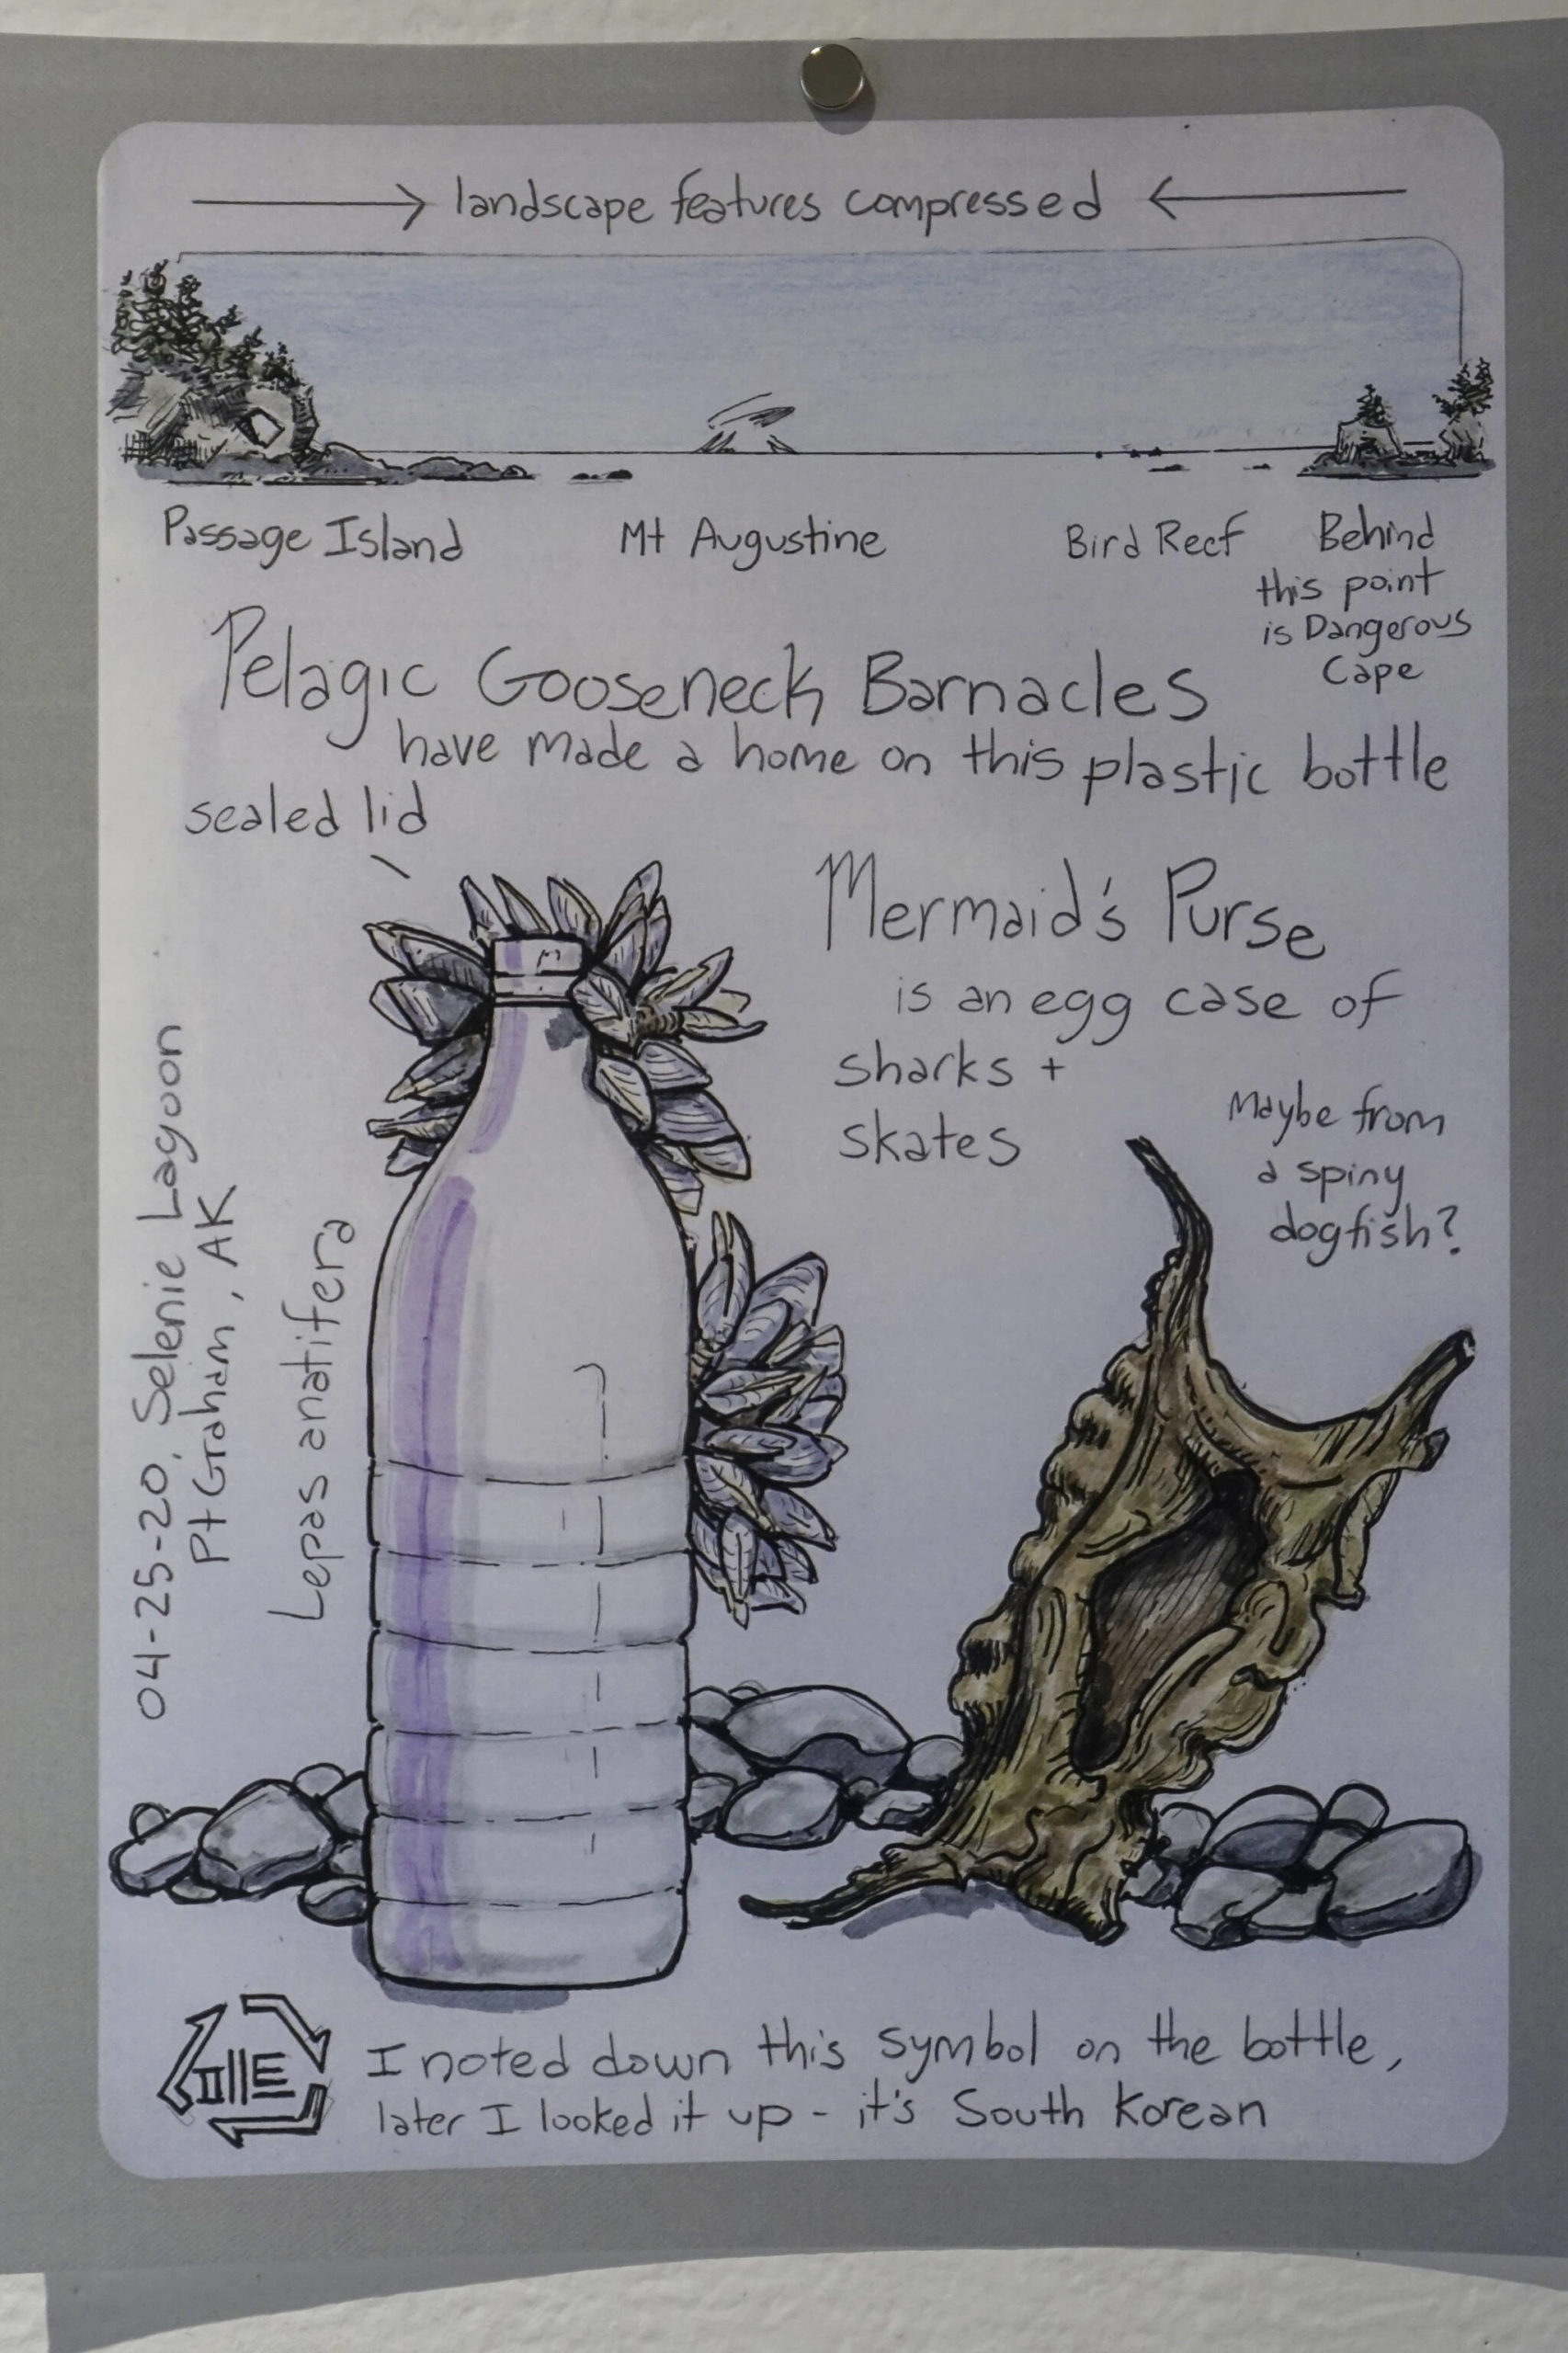 landscape features compressed
Passage Island
Mt Augustine
Bird Reef
Behind
this point
is Dangerous
Cape
Pelagic Gooseneck Barnacles
have made a home on this plastic bottle
sealed lid
Mermaid's Purse
is an egg case of
sharks +
skates
Maybe from
a spiny
dogfish?
04-25-20, Selenie Lagoon
Pt Graham, AK
Lepas anatifera
I noted down this symbol on the bottle,
later I looked it up - it's South Korean